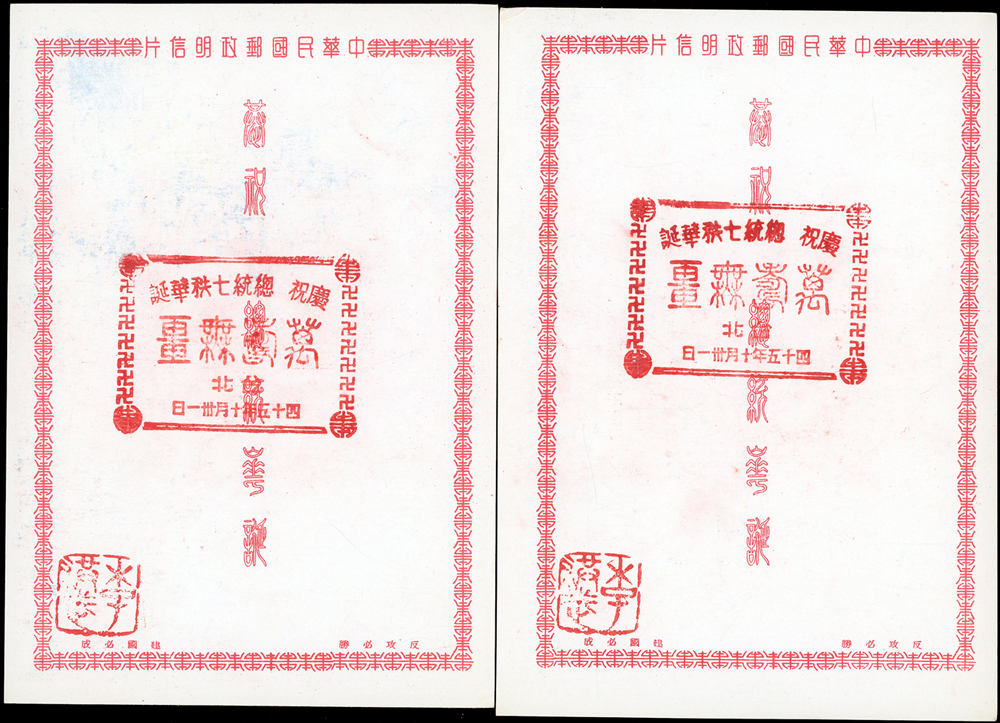 中華民國郵政明信片
恭祝總統誕
慶祝 總統七秩華誕
萬壽無畺
北
四十五年十月卅一日
反攻必勝 建國必成
中華民國郵政明信片
恭祝總統誕
慶祝 總統七秩華誕
萬壽無畺
北
四十五年十月卅一日
反攻必勝 建國必成